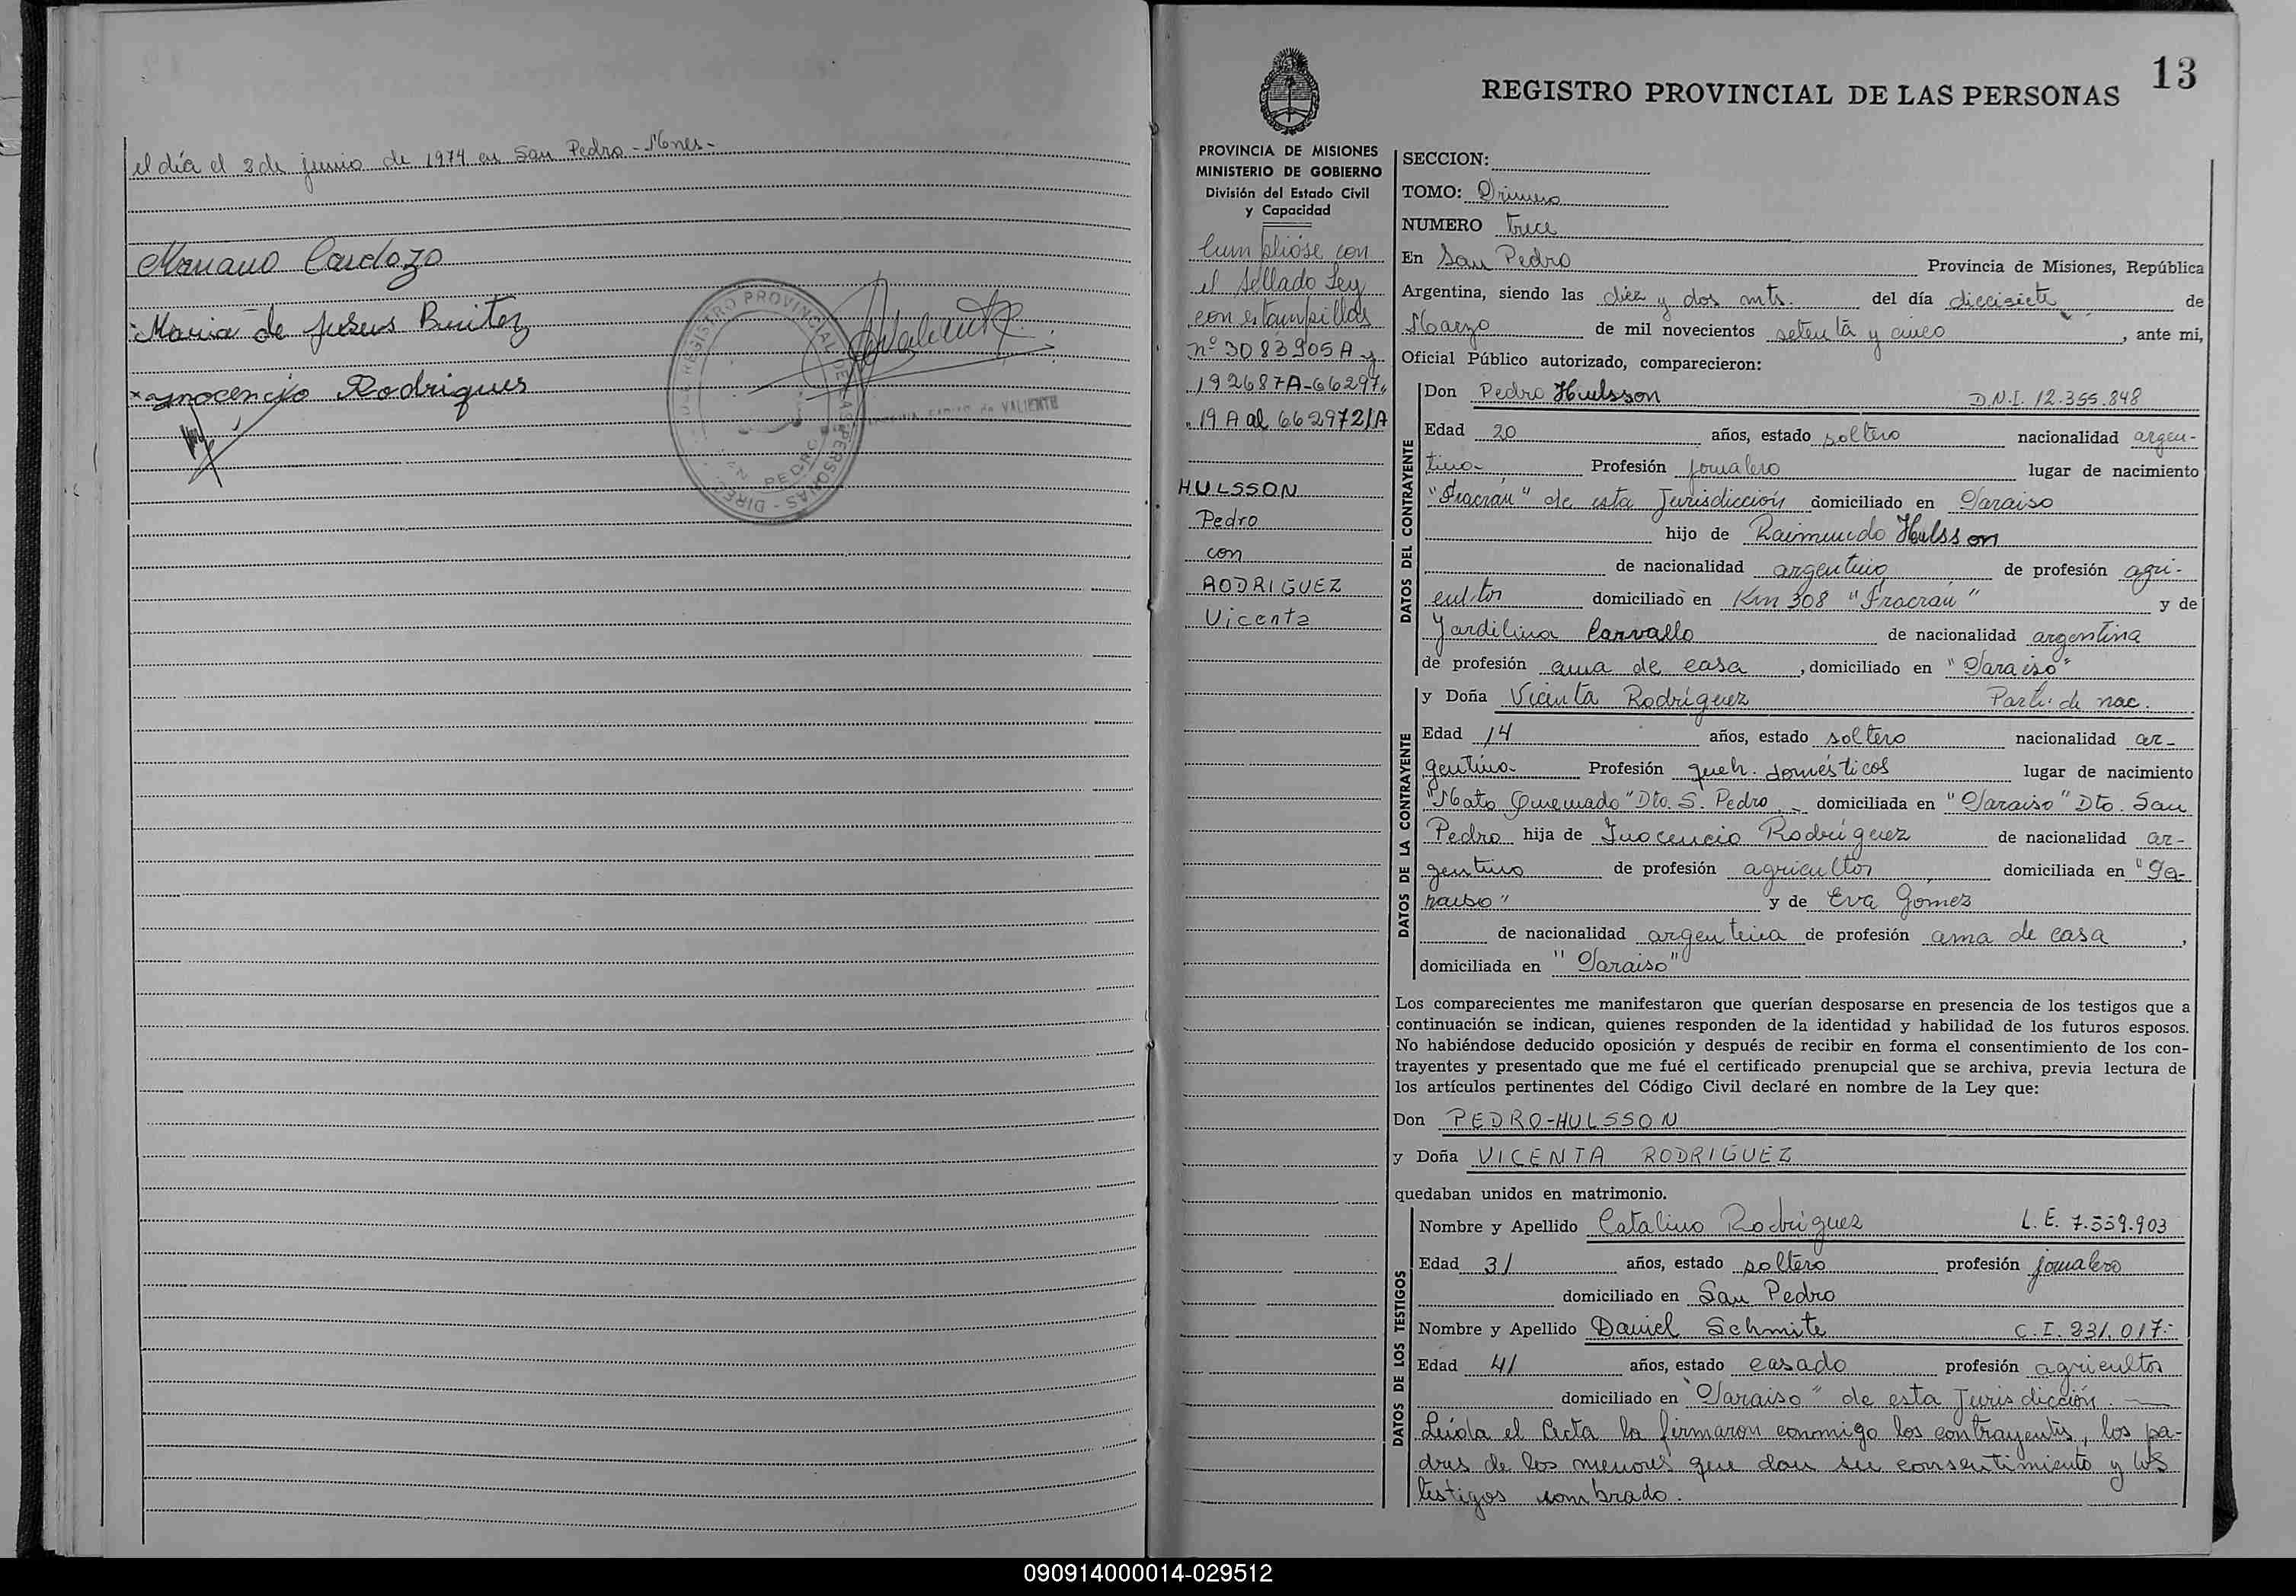 el día el 2 de junio de 1974 en San Pedro - Mnes -
Mariano Cardozo
Maria de Jesus Benitez
Inocencio Rodrigues
REGISTRO PROVINCIAL DE LAS PERSONAS
SAN PEDRO
de VALIENTE
13
REGISTRO PROVINCIAL DE LAS PERSONAS
PROVINCIA DE MISIONES
MINISTERIO DE GOBIERNO
División del Estado Civil
y Capacidad
Cumplióse con
el Sellado Ley
con estampillas
nº 3083905A y
192687A-66297
19A al 662972/A
HULSSON
Pedro
con
RODRIGUEZ
Vicenta
SECCION:
TOMO: Primero
NUMERO trece
En San Pedro Provincia de Misiones, República
Argentina, siendo las diez y dos mts. del día diecisiete de
Marzo de mil novecientos setenta y cinco, ante mi,
Oficial Público autorizado, comparecieron:
DATOS DEL CONTRAYENTE
Don Pedro Hulsson D.N.I. 12.355.848
Edad 20 años, estado soltero nacionalidad argen-
tino- Profesión jornalero lugar de nacimiento
"Fracrán" de esta Jurisdicción domiciliado en Paraiso
hijo de Raimundo Hulsson
de nacionalidad argentino de profesión agri-
cultor domiciliado en Km 308 "Fracrán" y de
Jardilina Carvallo de nacionalidad argentina
de profesión ama de casa, domiciliado en "Paraiso"
DATOS DE LA CONTRAYENTE
y Doña Vicenta Rodríguez Part. de nac.
Edad 14 años, estado soltero nacionalidad ar-
gentino- Profesión queh. domésticos lugar de nacimiento
"Mato Quemado" Dto. S. Pedro - domiciliada en "Paraiso" Dto. San
Pedro hija de Inocencio Rodríguez de nacionalidad ar-
gentino de profesión agricultor domiciliada en "Pa-
raiso" y de Eva Gomez
de nacionalidad argentina de profesión ama de casa,
domiciliada en "Paraiso"
Los comparecientes me manifestaron que querían desposarse en presencia de los testigos que a
continuación se indican, quienes responden de la identidad y habilidad de los futuros esposos.
No habiéndose deducido oposición y después de recibir en forma el consentimiento de los con-
trayentes y presentado que me fué el certificado prenupcial que se archiva, previa lectura de
los artículos pertinentes del Código Civil declaré en nombre de la Ley que:
Don PEDRO-HULSSON
y Doña VICENTA RODRIGUEZ
quedaban unidos en matrimonio.
DATOS DE LOS TESTIGOS
Nombre y Apellido Catalino Rodríguez L.E. 7.559.903
Edad 31 años, estado soltero profesión jornalero
domiciliado en San Pedro
Nombre y Apellido Daniel Schmite C.I. 231.017.-
Edad 41 años, estado casado profesión agricultor
domiciliado en "Paraiso" de esta Jurisdicción.
Leída el Acta la firmaron conmigo los contrayentes, los pa-
dres de los menores que dan su consentimiento y los
testigos nombrado.
090914000014-029512